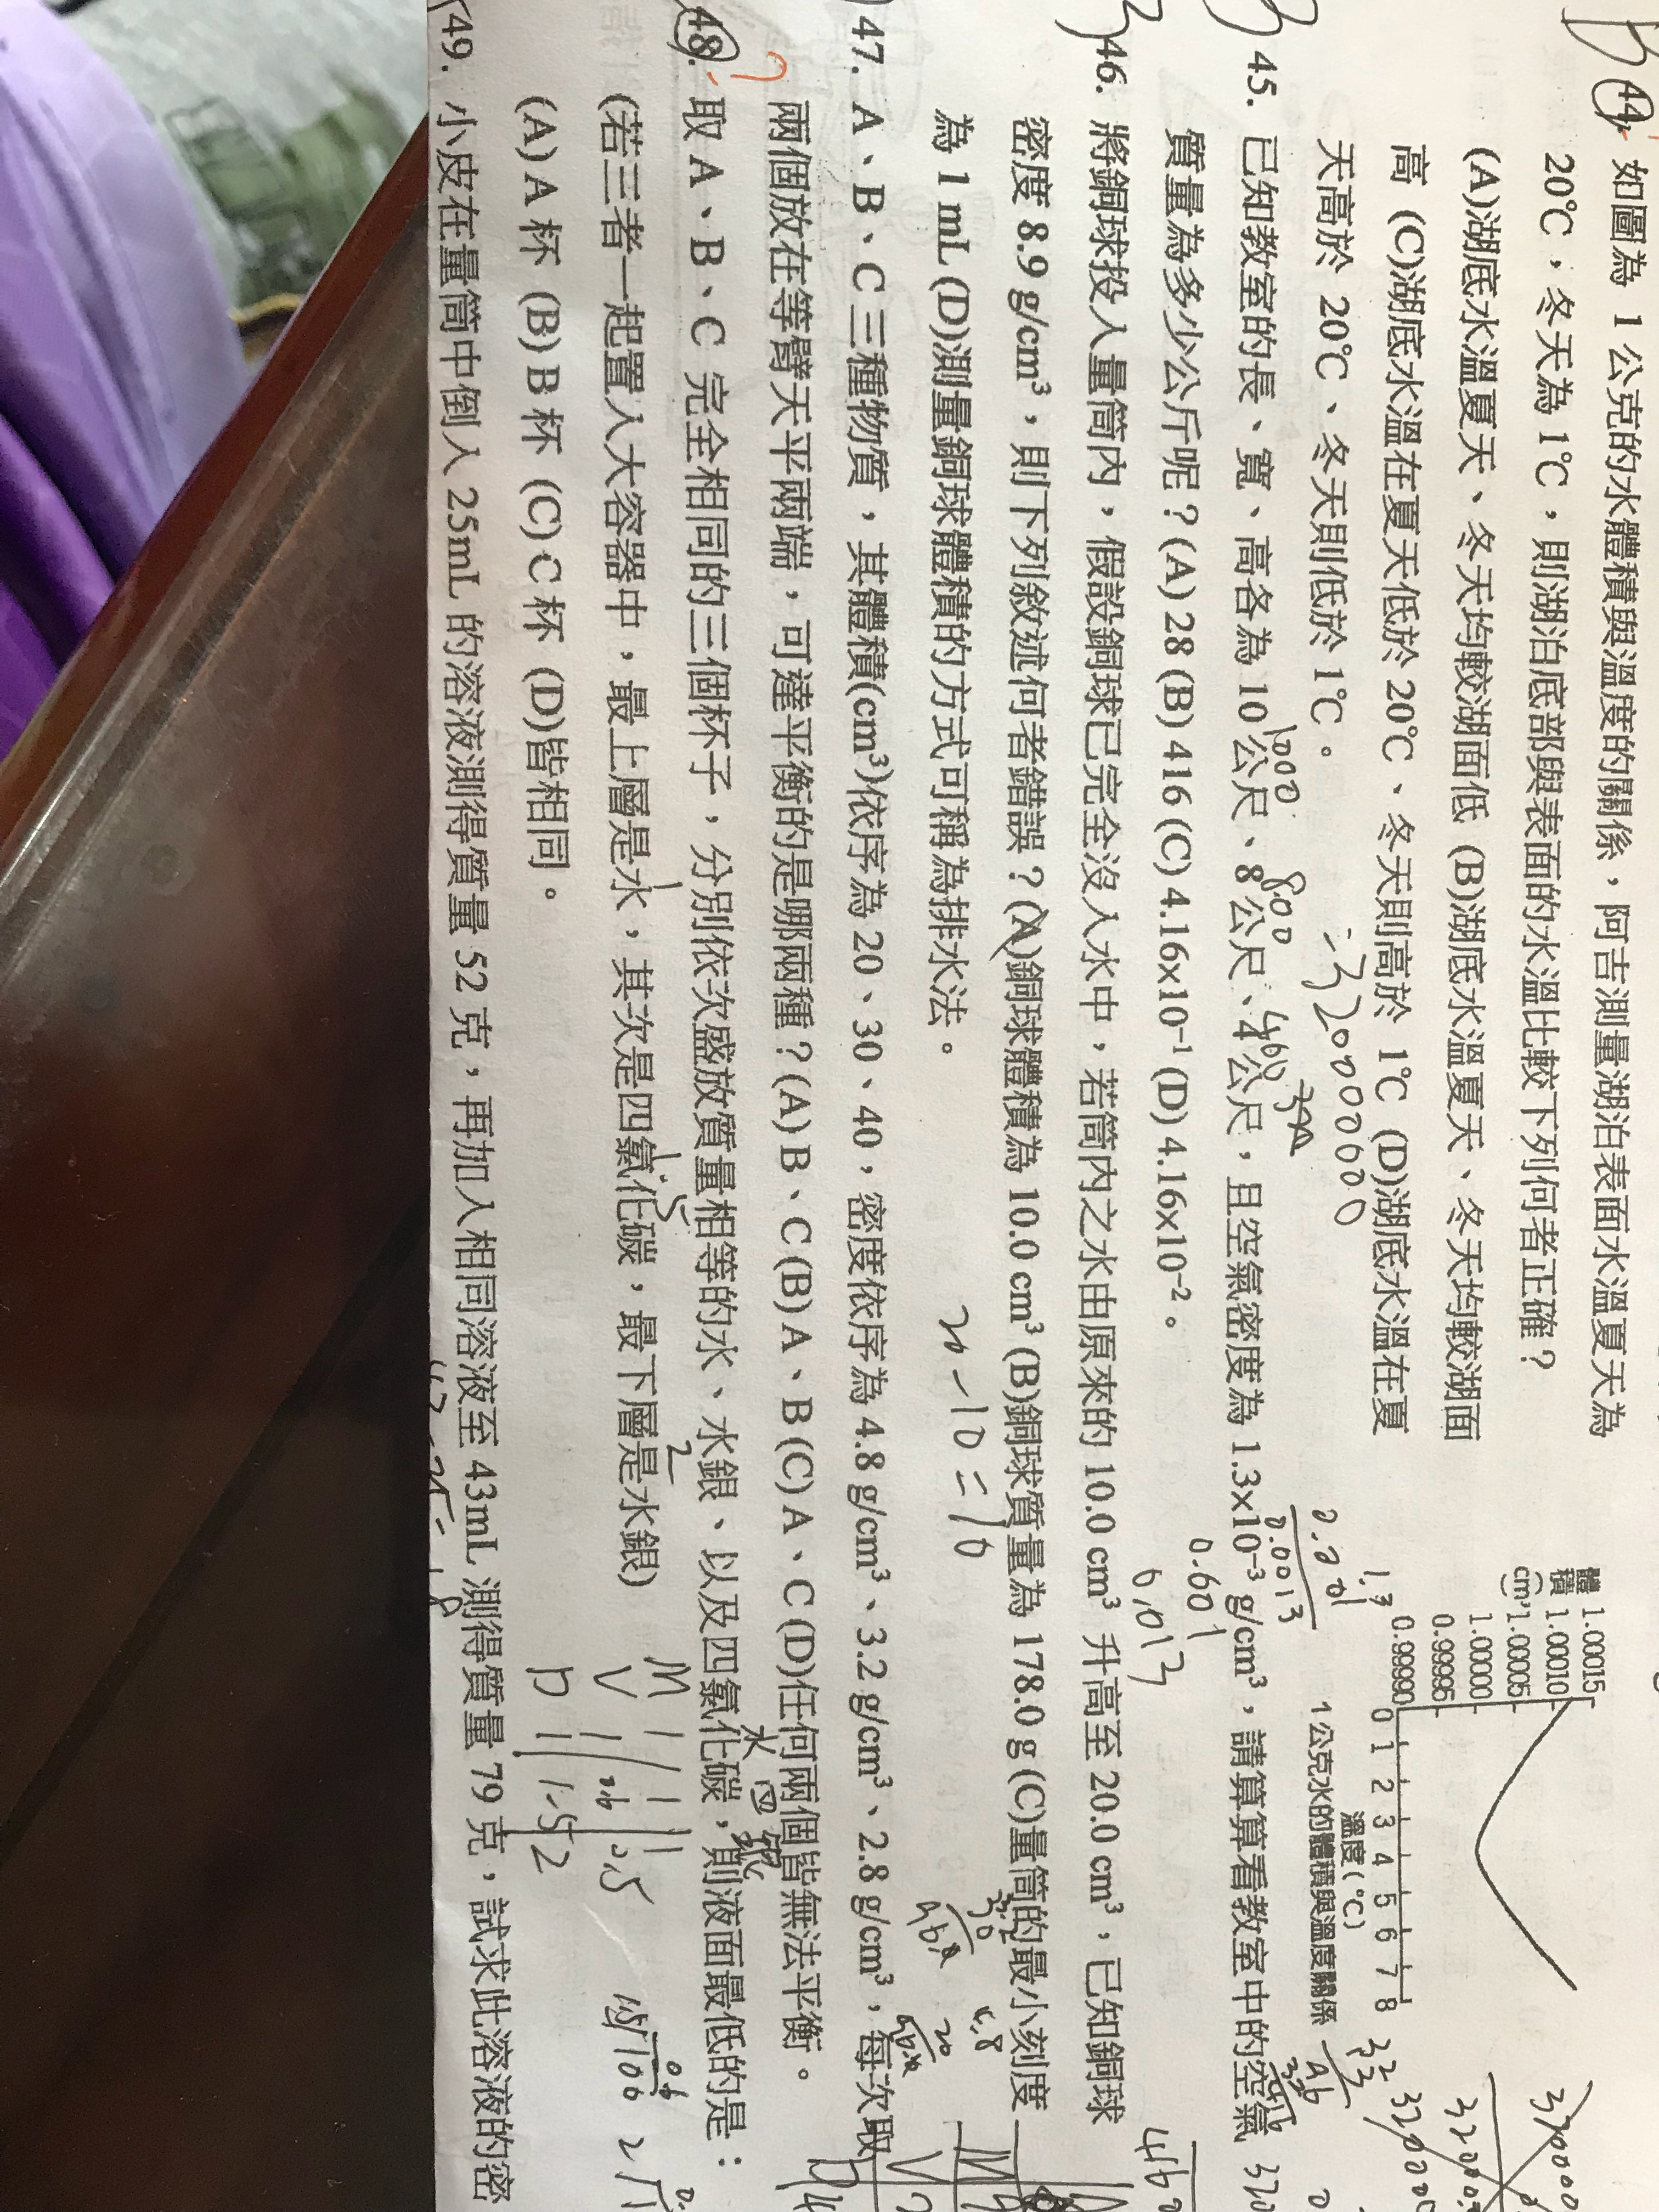 44. 如圖為 1 公克的水體積與溫度的關係，阿吉測量湖泊表面水溫夏天為
20℃，冬天為 1℃，則湖泊底部與表面的水溫比較下列何者正確？
(A)湖底水溫夏天、冬天均較湖面低 (B)湖底水溫夏天、冬天均較湖面
高 (C)湖底水溫在夏天低於 20℃、冬天則高於 1℃ (D)湖底水溫在夏
天高於 20℃、冬天則低於 1℃。
體積(cm³)
1.00015
1.00010
1.00005
1.00000
0.99995
0.99990
0 1 2 3 4 5 6 7 8
溫度(℃)
1 公克水的體積與溫度關係
45. 已知教室的長、寬、高各為 10 公尺、8 公尺、4 公尺，且空氣密度為 1.3×10⁻³ g/cm³，請算算看教室中的空氣
質量為多少公斤呢？(A) 28 (B) 416 (C) 4.16×10⁻¹ (D) 4.16×10⁻²。
1000
800
400
=32000000
0.001
0.0013
1.3
0.601
6.013
46. 將銅球投入量筒內，假設銅球已完全沒入水中，若筒內之水由原來的 10.0 cm³ 升高至 20.0 cm³，已知銅球
密度 8.9 g/cm³，則下列敘述何者錯誤？(A)銅球體積為 10.0 cm³ (B)銅球質量為 178.0 g (C)量筒的最小刻度
為 1 mL (D)測量銅球體積的方式可稱為排水法。
20-10=10
47. A、B、C 三種物質，其體積(cm³)依序為 20、30、40，密度依序為 4.8 g/cm³、3.2 g/cm³、2.8 g/cm³，每次取
兩個放在等臂天平兩端，可達平衡的是哪兩種？(A) B、C (B) A、B (C) A、C (D)任何兩個皆無法平衡。
48. 取 A、B、C 完全相同的三個杯子，分別依次盛放質量相等的水、水銀、以及四氯化碳，則液面最低的是：
(若三者一起置入大容器中，最上層是水，其次是四氯化碳，最下層是水銀)
(A) A 杯 (B) B 杯 (C) C 杯 (D)皆相同。
1
1.5
2
水 四 銀
M 1 1 1
V 1 0.6 0.5
D 1 1.5 2
49. 小皮在量筒中倒入 25mL 的溶液測得質量 52 克，再加入相同溶液至 43mL 測得質量 79 克，試求此溶液的密